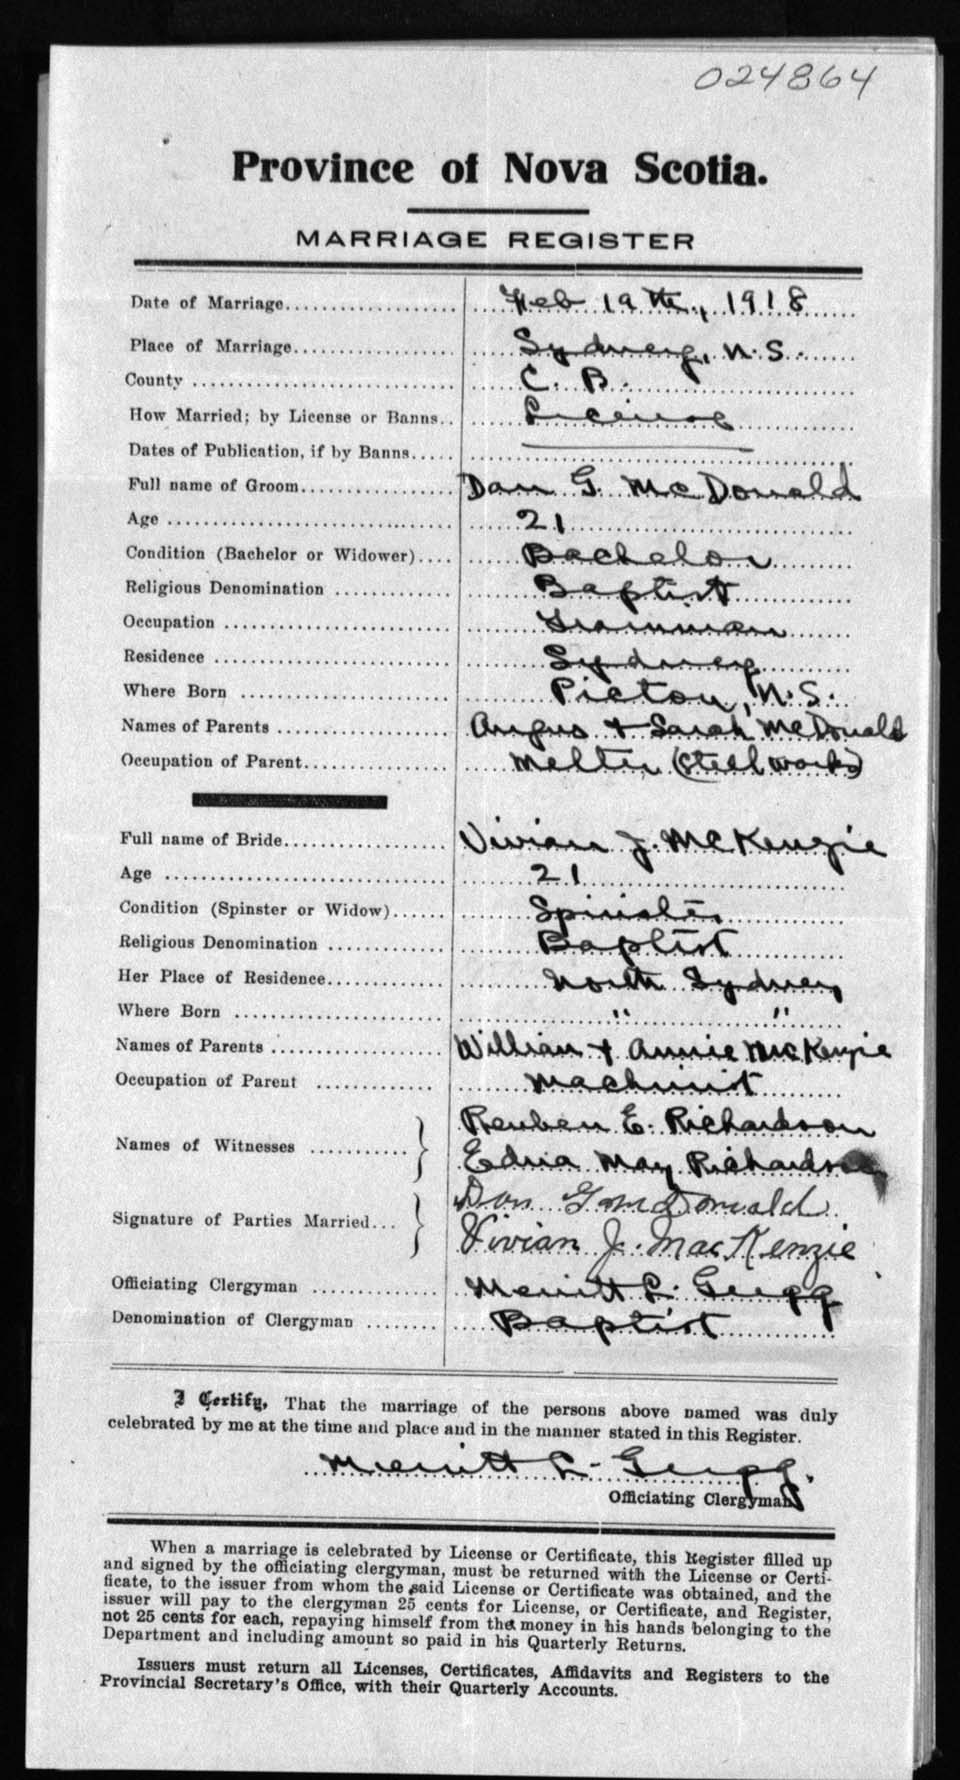 024864
Province of Nova Scotia.
MARRIAGE REGISTER
Date of Marriage Feb 19th, 1918
Place of Marriage Sydney, N.S.
County C. B.
How Married; by License or Banns License
Dates of Publication, if by Banns
Full name of Groom Dan G. McDonald
Age 21
Condition (Bachelor or Widower) Bachelor
Religious Denomination Baptist
Occupation Trainman
Residence Sydney
Where Born Pictou, N.S.
Names of Parents Angus + Sarah McDonald
Occupation of Parent Melter (Steel works)
Full name of Bride Vivian J. McKenzie
Age 21
Condition (Spinster or Widow) Spinster
Religious Denomination Baptist
Her Place of Residence North Sydney
Where Born " "
Names of Parents William + Annie McKenzie
Occupation of Parent Machinist
Names of Witnesses } Reuben E. Richardson
Edna May Richardson
Signature of Parties Married } Dan G McDonald
Vivian J. MacKenzie
Officiating Clergyman Merritt L. Gregg
Denomination of Clergyman Baptist
I Certify, That the marriage of the persons above named was duly
celebrated by me at the time and place and in the manner stated in this Register.
Merritt L. Gregg.
Officiating Clergyman
When a marriage is celebrated by License or Certificate, this Register filled up
and signed by the officiating clergyman, must be returned with the License or Certi-
ficate, to the issuer from whom the said License or Certificate was obtained, and the
issuer will pay to the clergyman 25 cents for License, or Certificate, and Register,
not 25 cents for each, repaying himself from the money in his hands belonging to the
Department and including amount so paid in his Quarterly Returns.
Issuers must return all Licenses, Certificates, Affidavits and Registers to the
Provincial Secretary's Office, with their Quarterly Accounts.